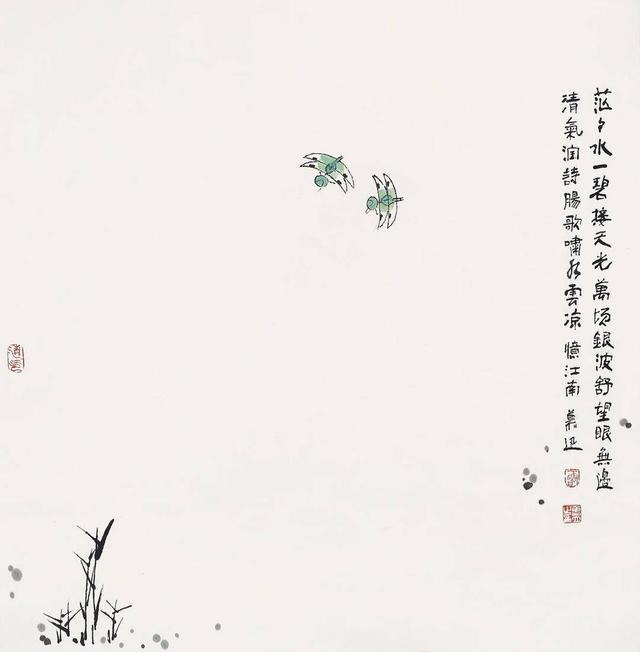 茫々水一碧接天光萬顷銀波舒望眼無邊
清氣润詩腸歌嘯水雲凉 憶江南